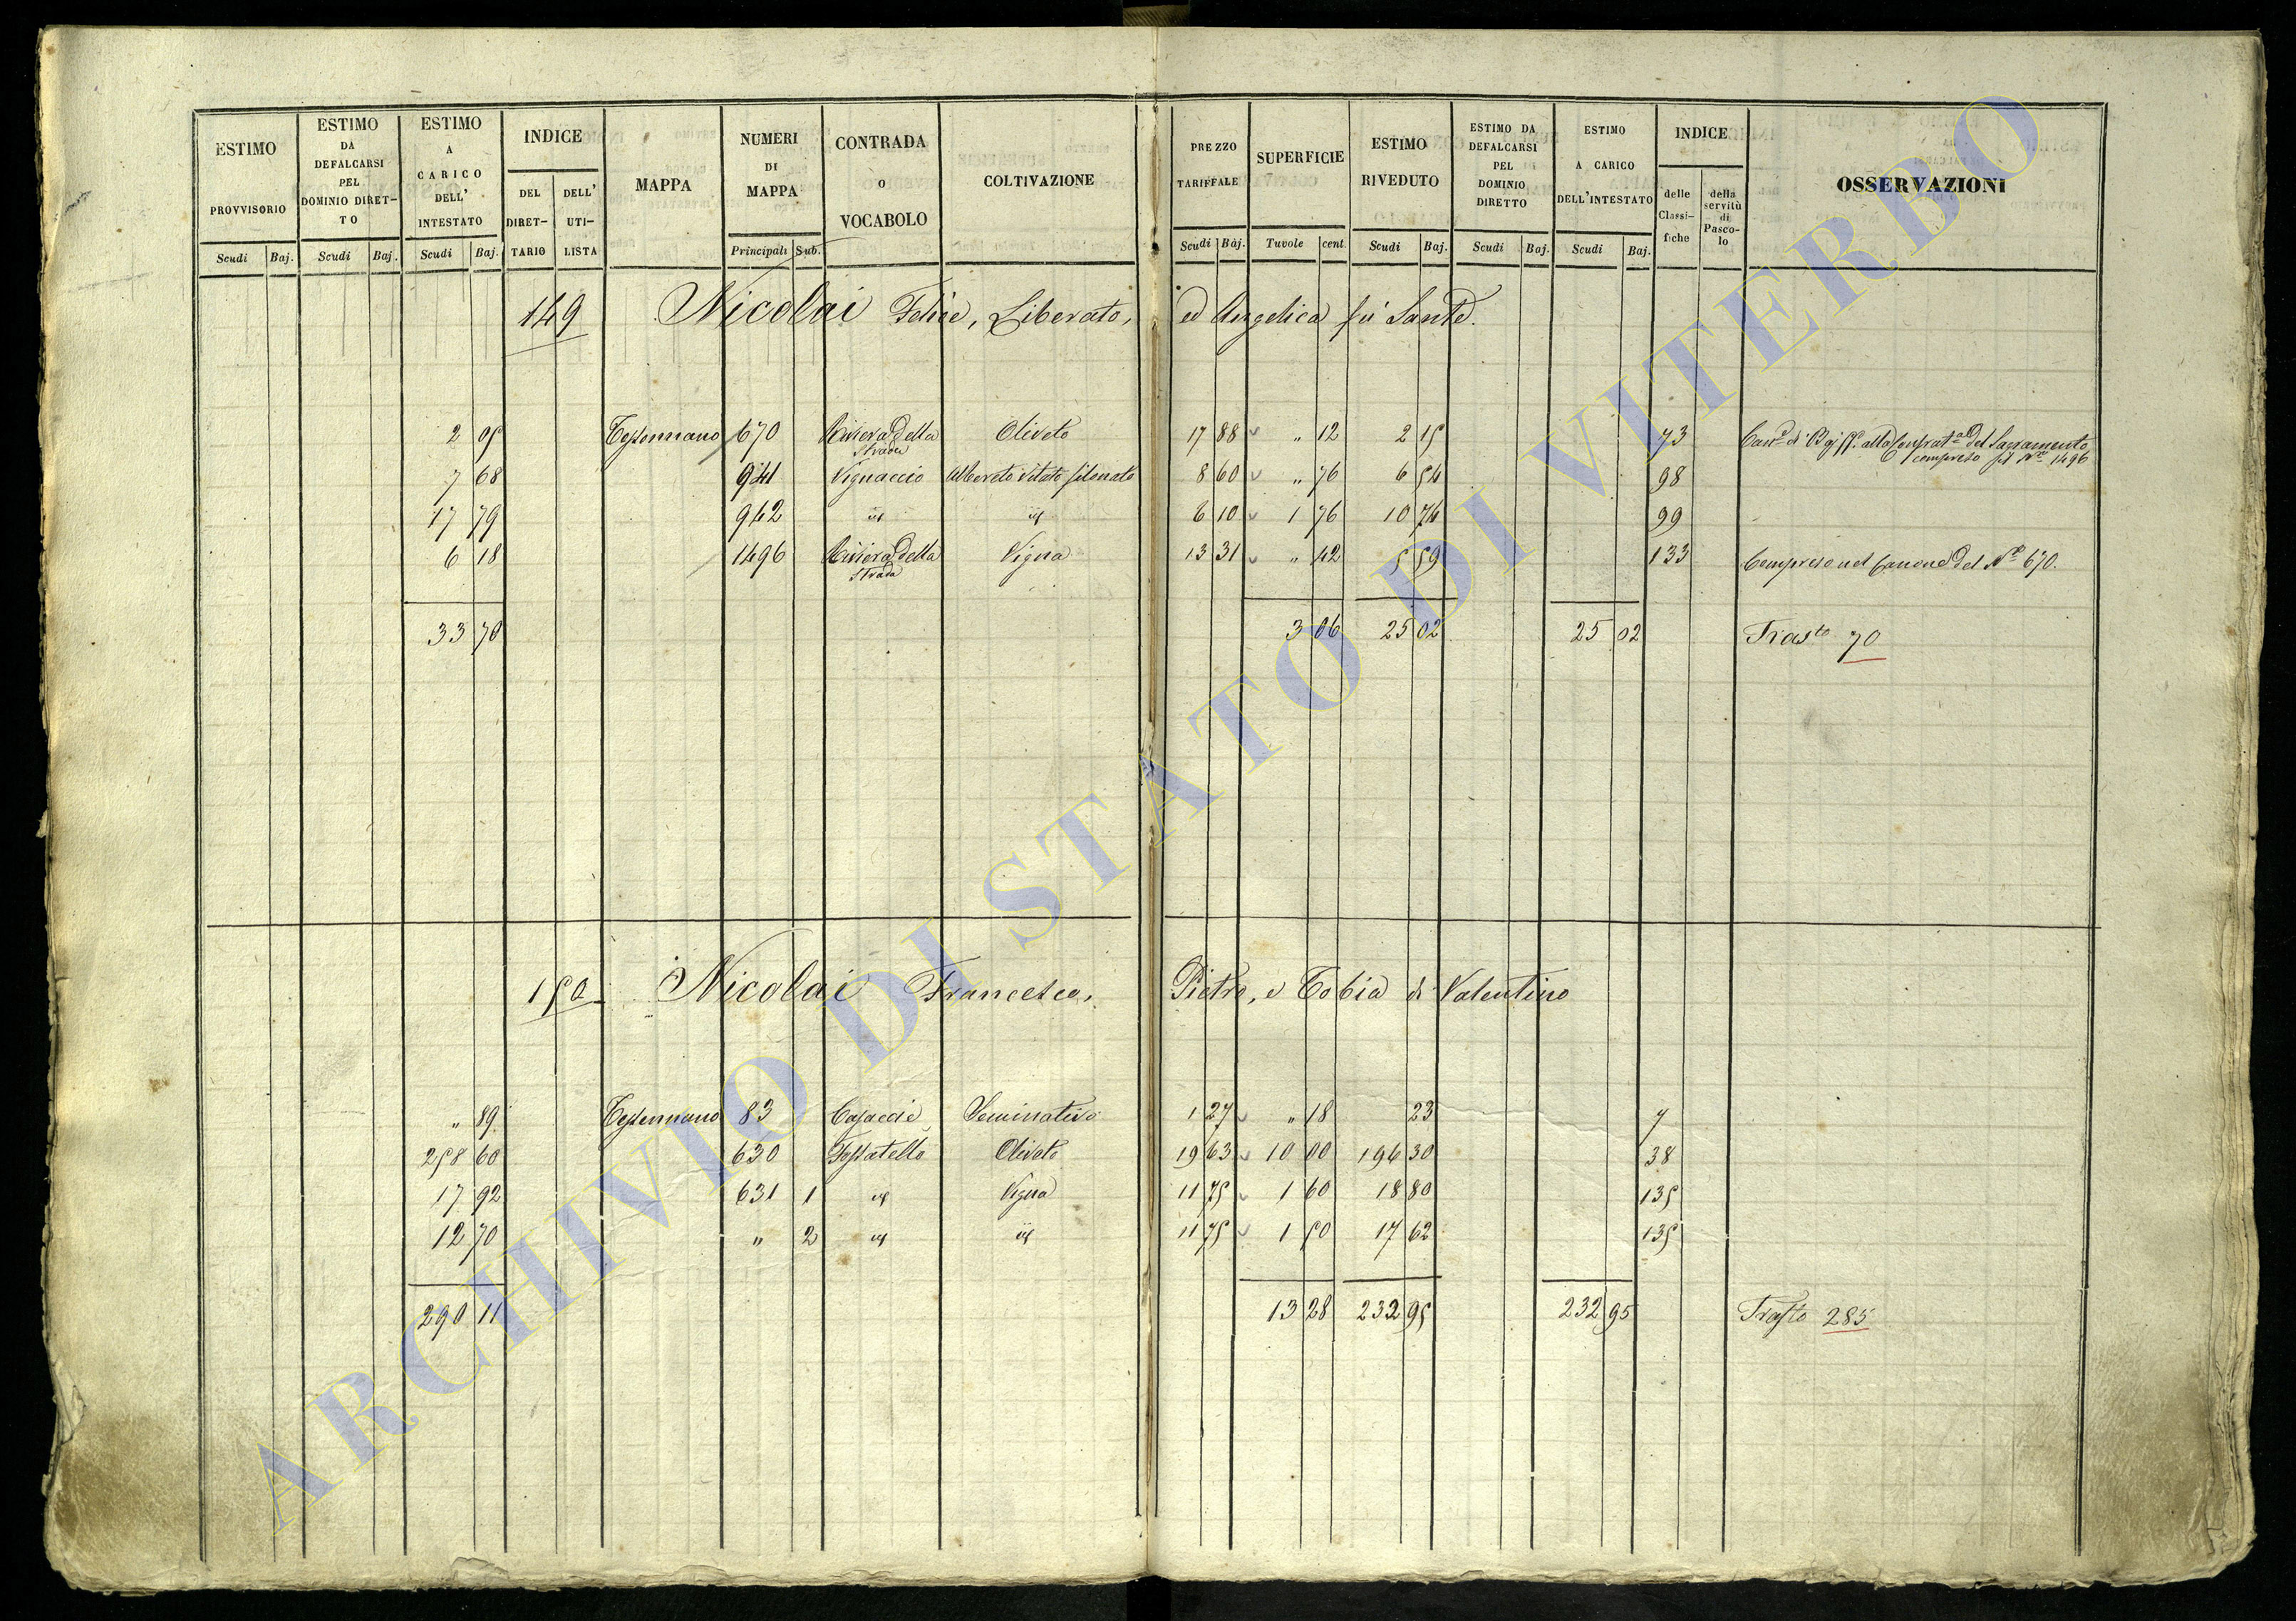 ESTIMO PROVVISORIO Scudi Baj.
ESTIMO DA DEFALCARSI PEL DOMINIO DIRETTO Scudi Baj.
ESTIMO A CARICO DELL' INTESTATO Scudi Baj.
INDICE DEL DIRETTARIO DELL' UTILISTA
MAPPA
NUMERI DI MAPPA Principali Sub.
CONTRADA O VOCABOLO
COLTIVAZIONE
PREZZO TARIFFALE Scudi Baj.
SUPERFICIE Tavole cent.
ESTIMO RIVEDUTO Scudi Baj.
ESTIMO DA DEFALCARSI PEL DOMINIO DIRETTO Scudi Baj.
ESTIMO A CARICO DELL'INTESTATO Scudi Baj.
INDICE delle Classifiche della servitù di Pascolo
OSSERVAZIONI
149 Nicolai Felice, Liberato, ed Angelica fù Sante.
2 05 Tessennano 670 Riviera della Strada Oliveto 17 88 " 12 2 15 73 alla Confrat.a del Sacramento compreso il N.o 1496
7 68 941 Vignaccio Alberato vitato filonato 8 60 " 76 6 54 98
17 79 942 id id 6 10 1 76 10 74 99
6 18 1496 Riviera della Strada Vigna 13 31 " 42 5 59 133 Compreso nel Canone del N.o 670.
33 70 3 06 25 02 25 02 Trasto 70
150 Nicolai Francesco, Pietro, e Tobia di Valentino
" 89 Tessennano 83 Casaccie Seminativo 1 27 " 18 23 7
258 60 630 Fossatello Oliveto 19 63 10 00 196 30 38
17 92 631 1 id Vigna 11 75 1 60 18 80 135
12 70 " 2 id id 11 75 1 50 17 62 135
290 11 13 28 232 95 232 95 Trasto 285
ARCHIVIO DI STATO DI VITERBO